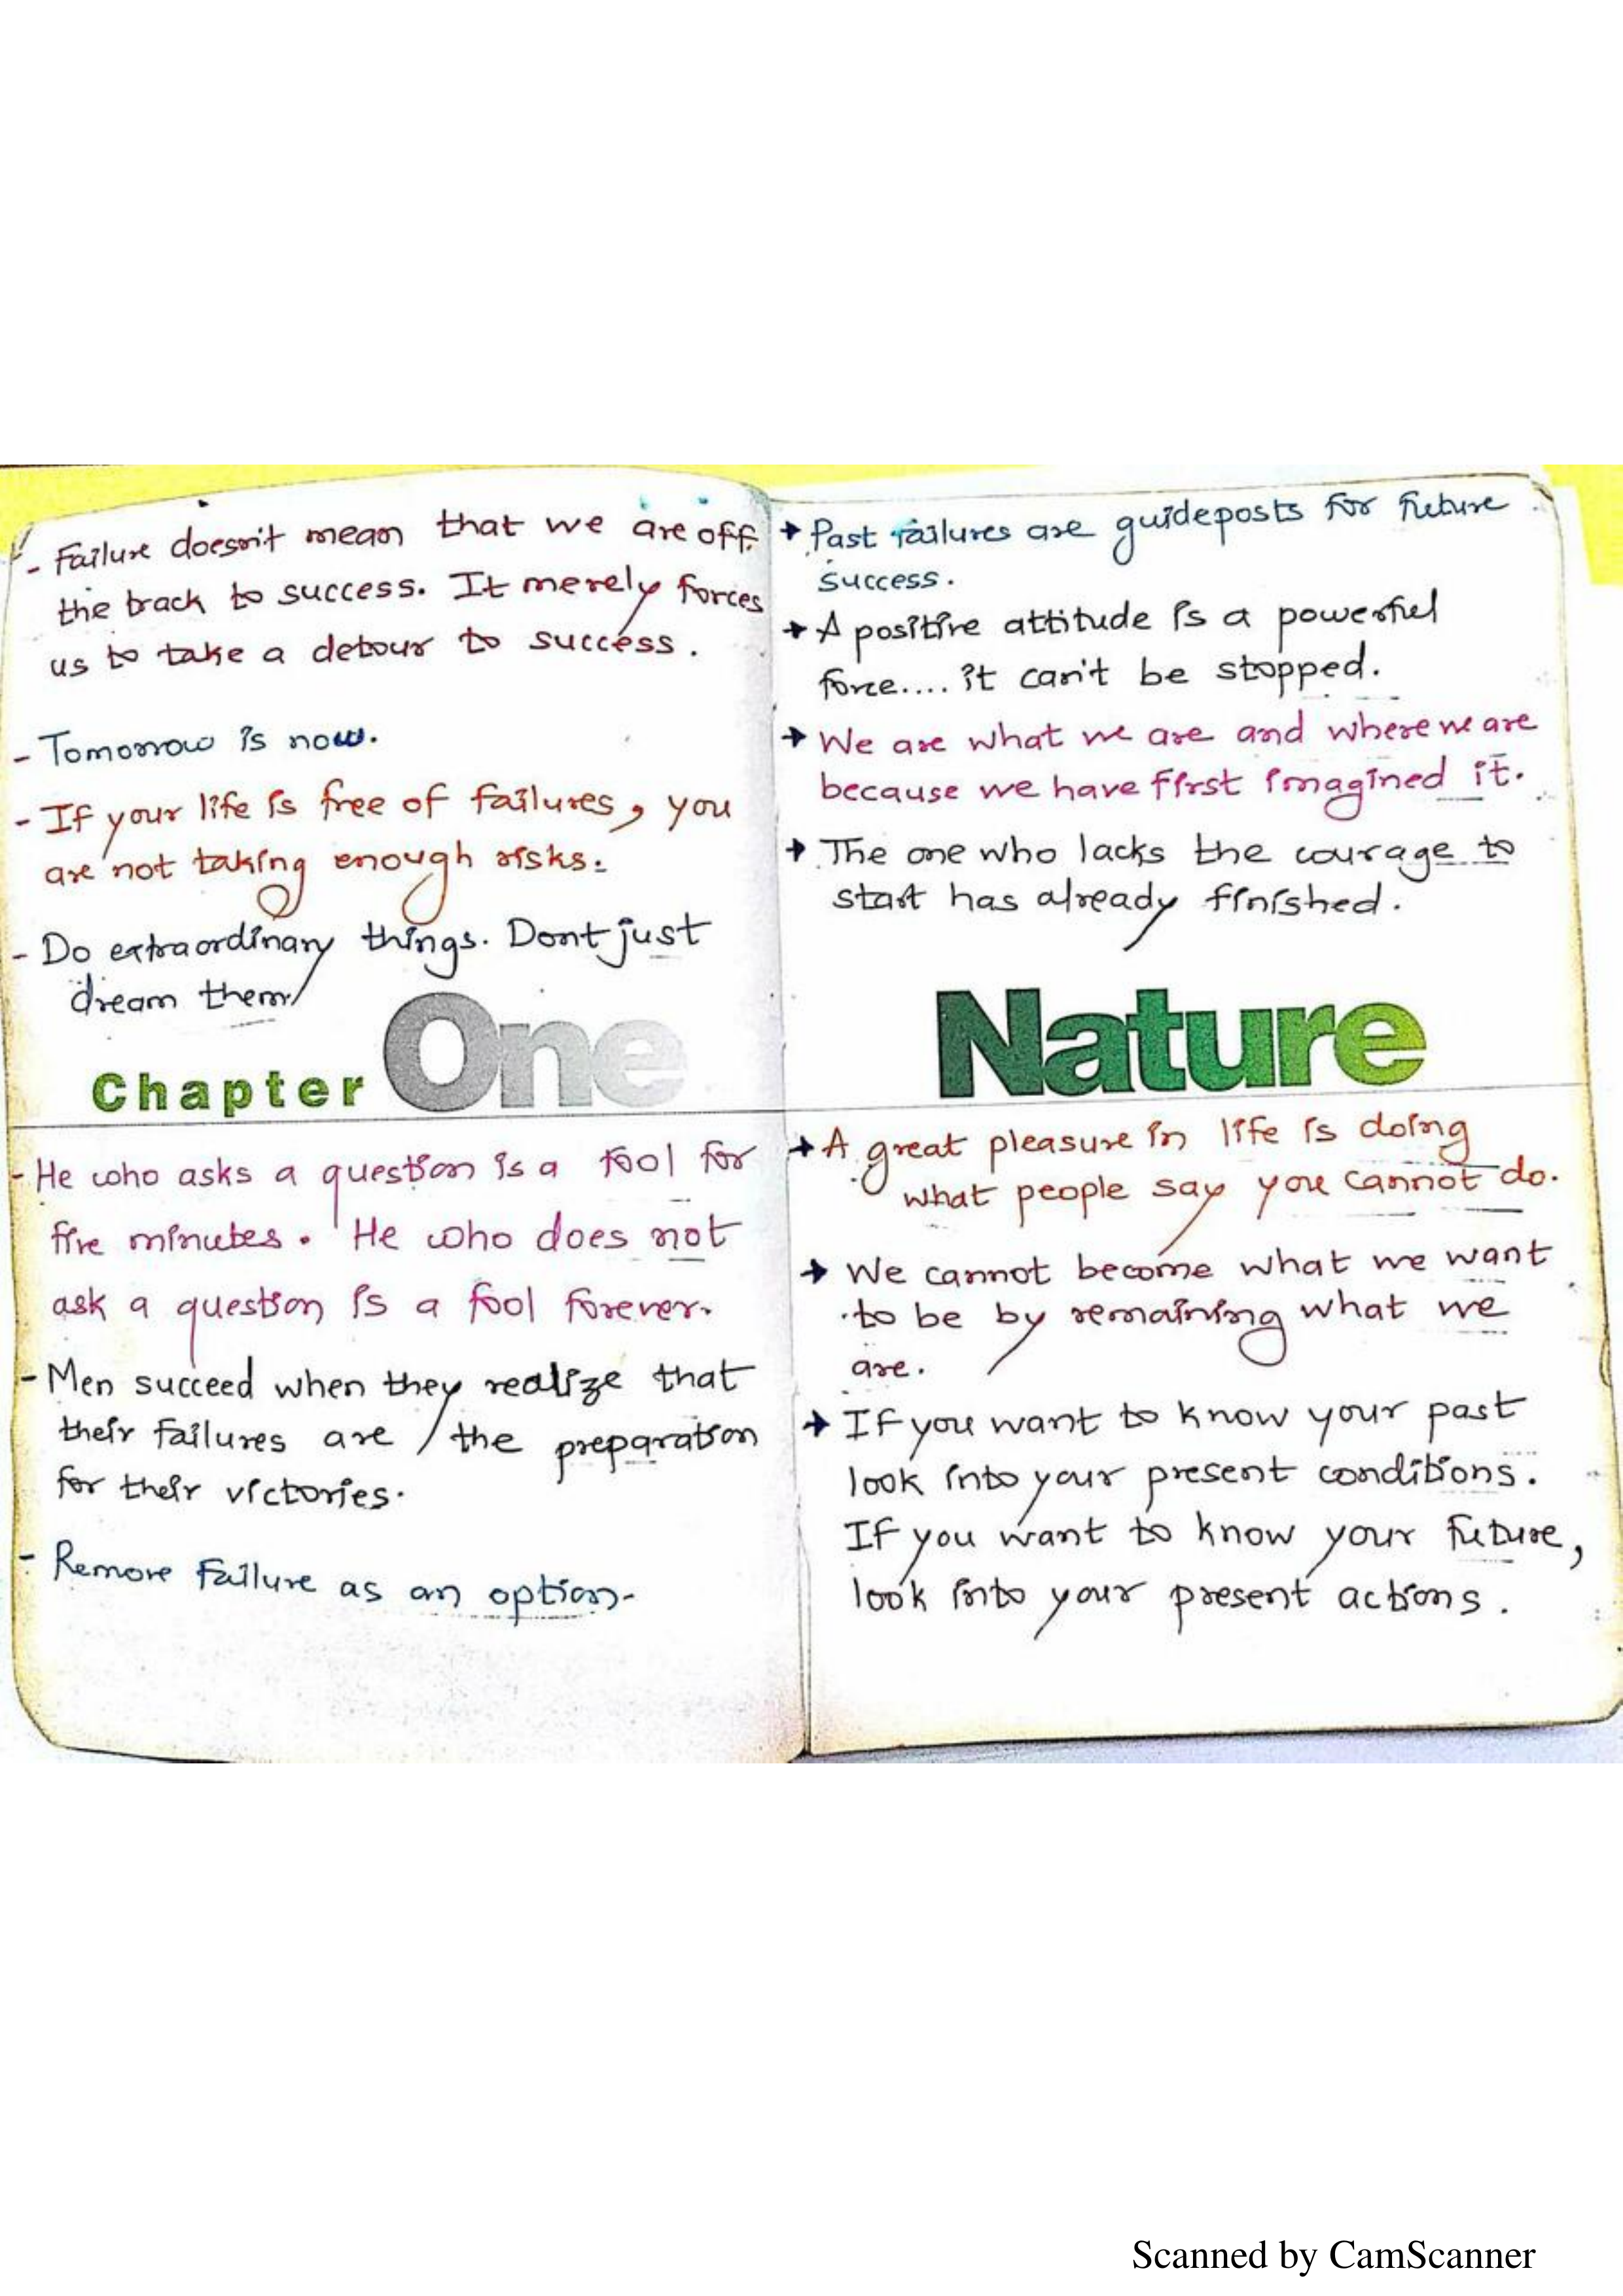 - Failure doesn't mean that we are off
the track to success. It merely forces
us to take a detour to success.
- Tomorrow is now.
- If your life is free of failures, you
are not taking enough risks.
- Do extraordinary things. Dont just
dream them.
Chapter One
- He who asks a question is a fool for
five minutes. He who does not
ask a question is a fool forever.
- Men succeed when they realize that
their failures are the preparation
for their victories.
- Remove failure as an option.
→ Past failures are guideposts for future
success.
→ A positive attitude is a powerful
force.... it can't be stopped.
→ We are what we are and where we are
because we have first imagined it.
→ The one who lacks the courage to
start has already finished.
Nature
→ A great pleasure in life is doing
what people say you cannot do.
→ We cannot become what we want
to be by remaining what we
are.
→ If you want to know your past
look into your present conditions.
If you want to know your future,
look into your present actions.
Scanned by CamScanner